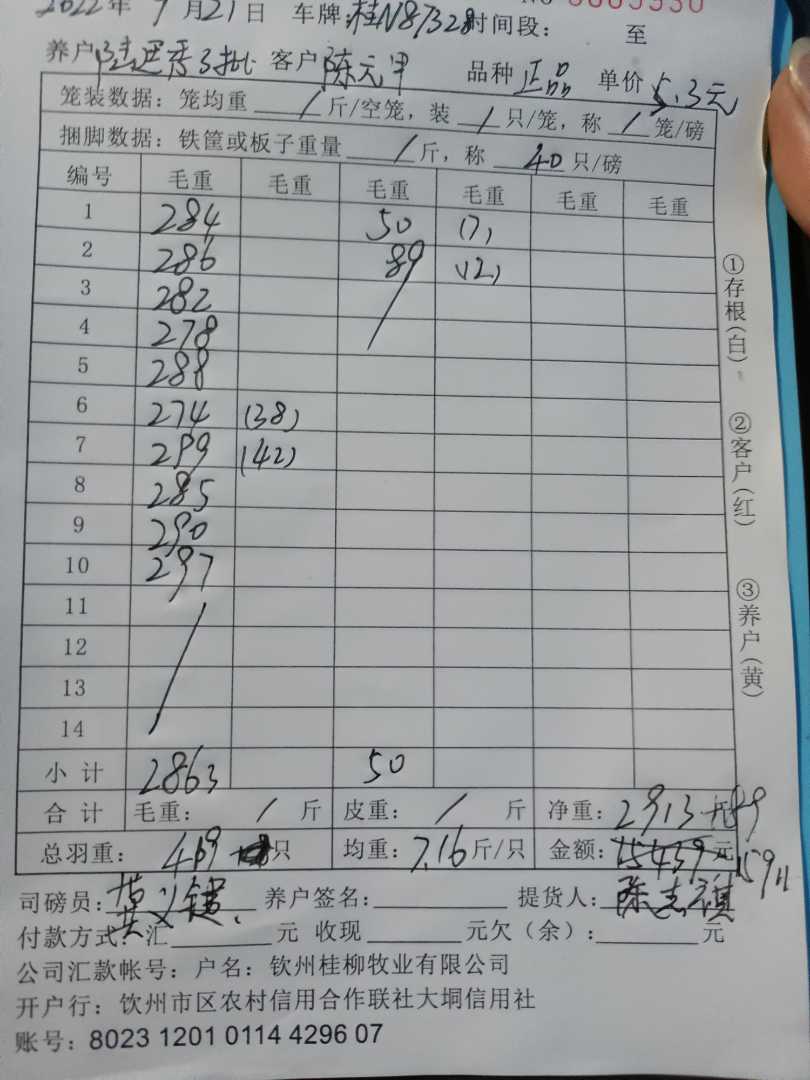 2022年7月21日 车牌:桂N87328时间段: 至
No 0005330
养户:陆进秀3批 客户陈元甲 品种正品 单价5.3元
笼装数据:笼均重/斤/空笼,装/只/笼,称/笼/磅
捆脚数据:铁筐或板子重量/斤,称40只/磅
编号 毛重 毛重 毛重 毛重 毛重 毛重
1 284 50 (7)
2 286 89 (12)
3 282 /
4 278
5 288
6 274 (38)
7 299 (42)
8 285
9 290
10 297
11 /
12
13
14
小计 2863 50
合计 毛重:/斤 皮重:/斤 净重:2913+89
总羽重:419只 均重:7.16斤/只 金额:15439元 15911
司磅员: 养户签名: 提货人:陈志祺
付款方式:汇 元 收现 元欠(余): 元
公司汇款帐号:户名:钦州桂柳牧业有限公司
开户行:钦州市区农村信用合作联社大垌信用社
账号:8023 1201 0114 4296 07
①存根(白)
②客户(红)
③养户(黄)